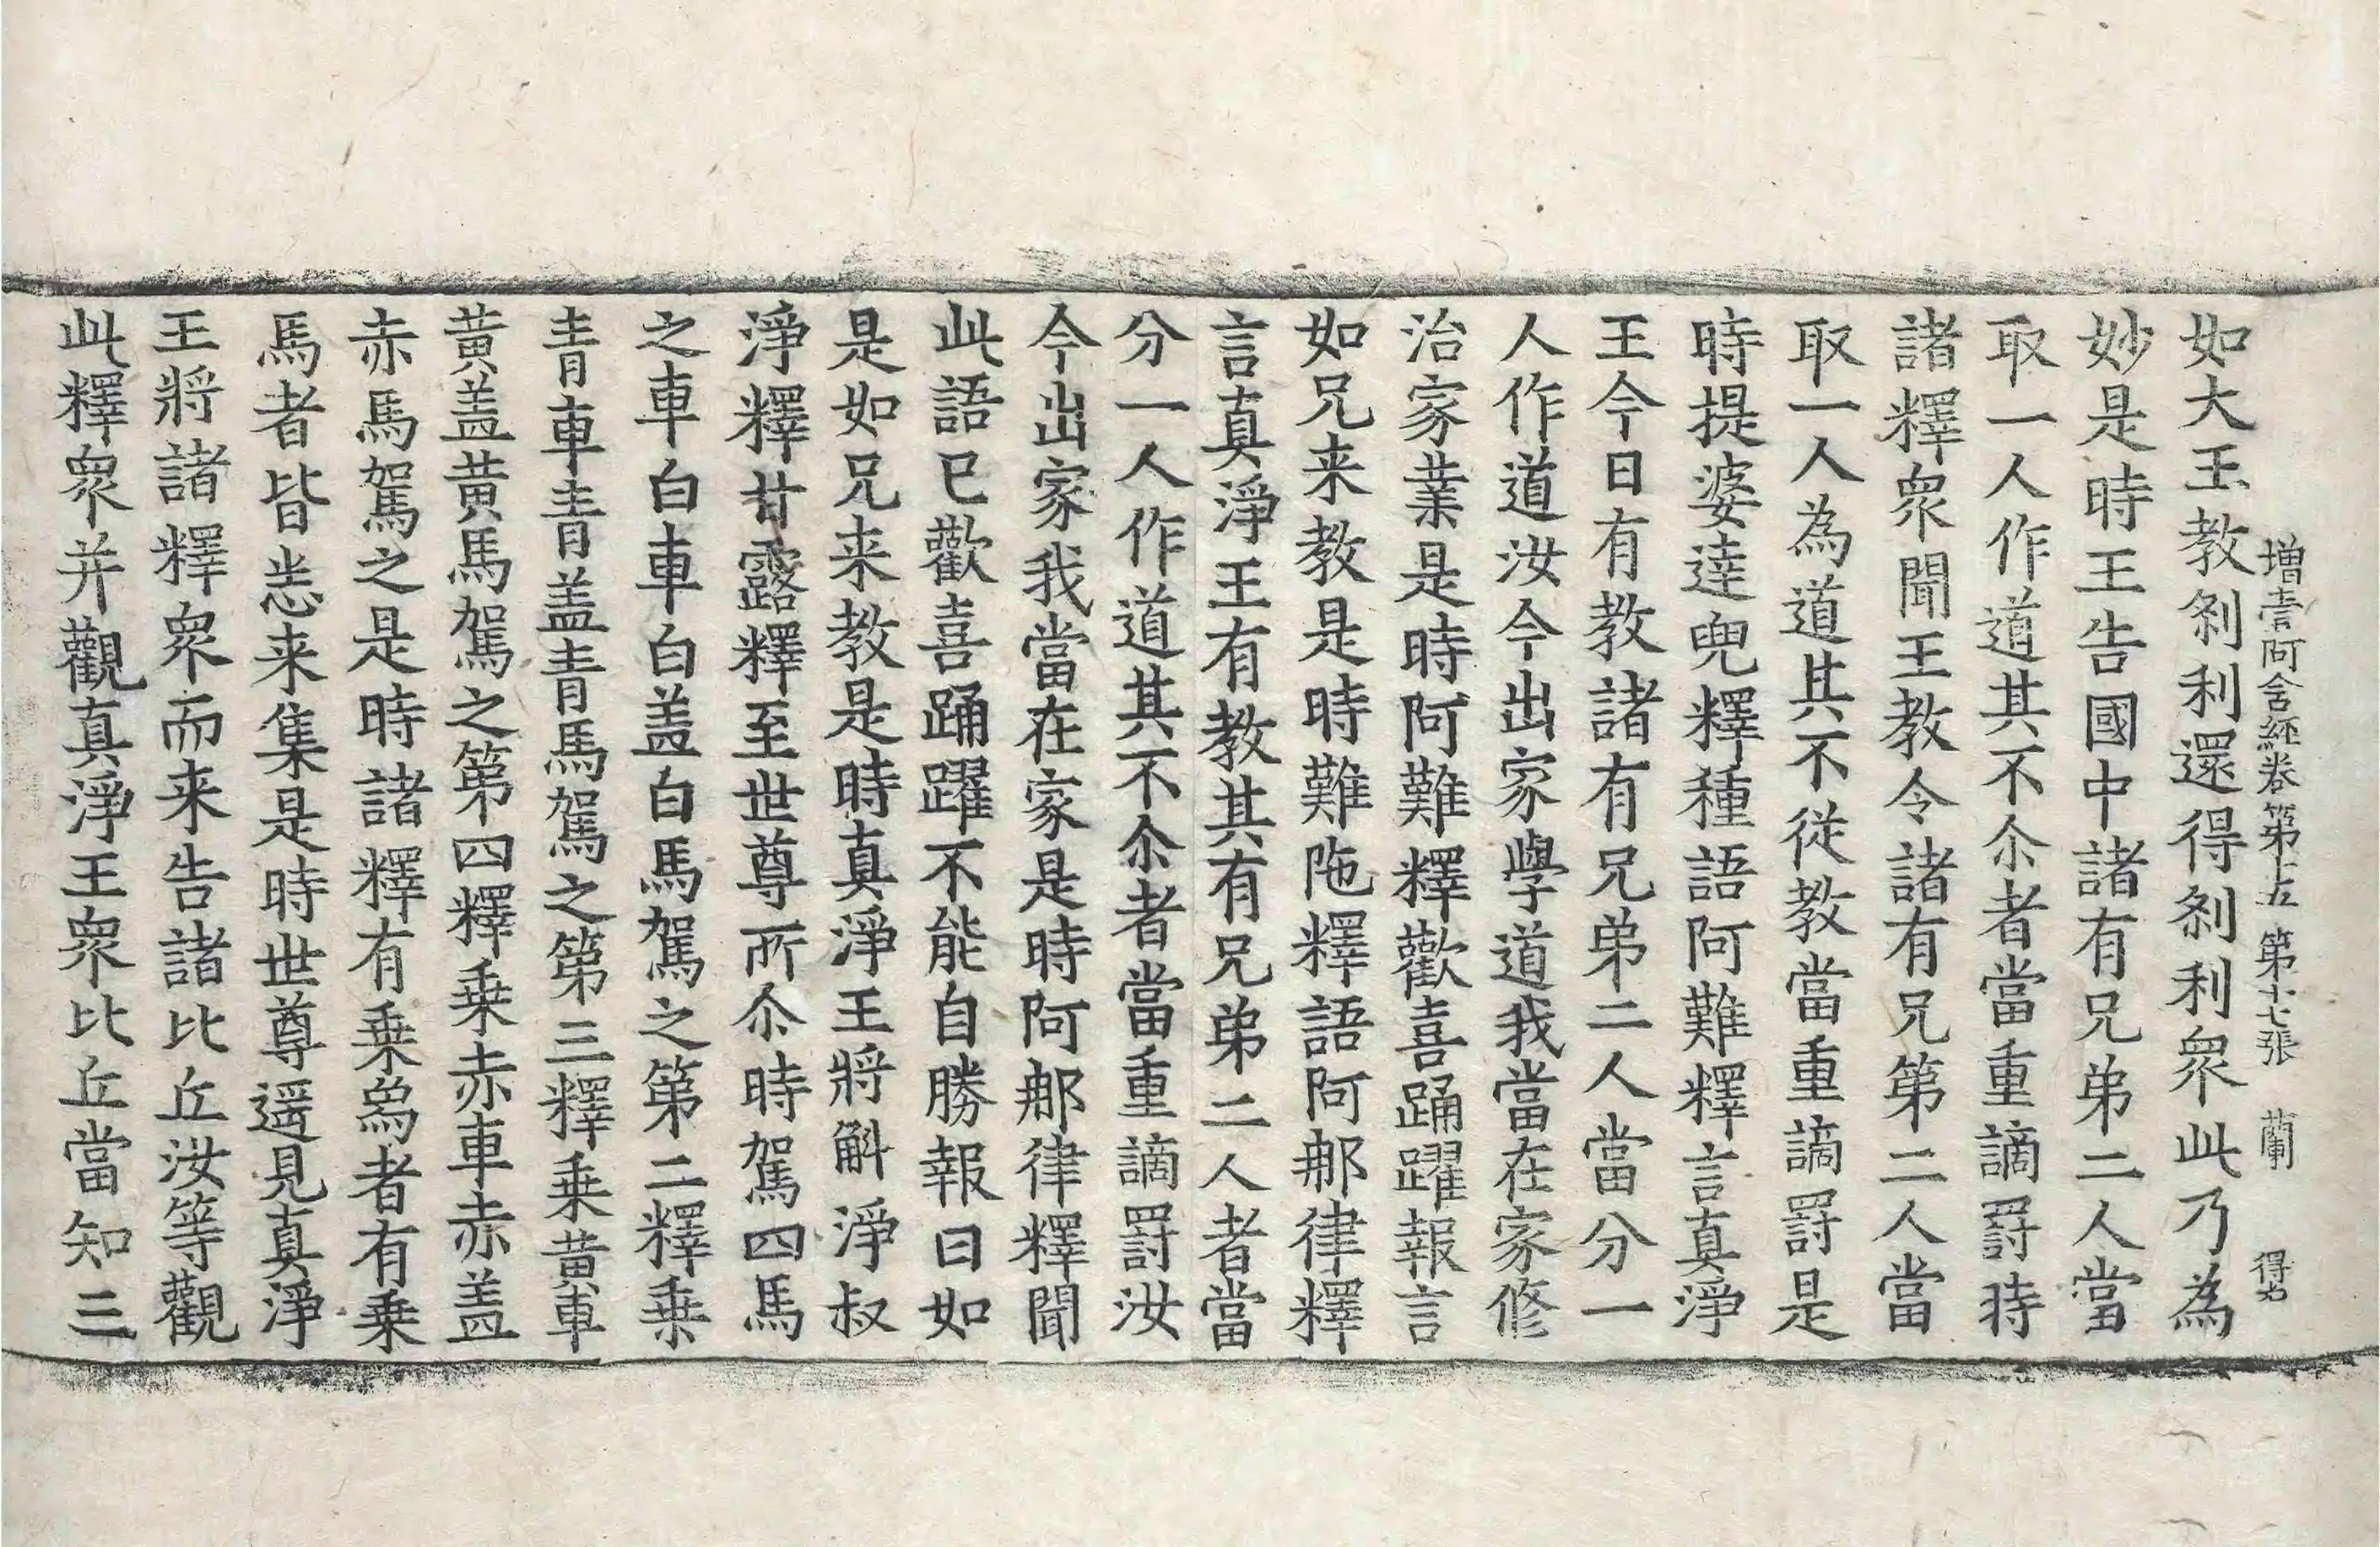 增壹阿含經卷第十五　第十七張　蘭　得右
如大王教剎利還得剎利衆此乃為
妙是時王告國中諸有兄弟二人當
取一人作道其不尒者當重謫罰時
諸釋衆聞王教令諸有兄第二人當
取一人為道其不從教當重謫罰是
時提婆達兜釋種語阿難釋言真淨
王今日有教諸有兄弟二人當分一
人作道汝今出家學道我當在家修
治家業是時阿難釋歡喜踊躍報言
如兄来教是時難陁釋語阿那律釋
言真淨王有教其有兄弟二人者當
分一人作道其不尒者當重謫罰汝
今出家我當在家是時阿那律釋聞
此語已歡喜踊躍不能自勝報曰如
是如兄来教是時真淨王將斛淨叔
淨釋甘露釋至世尊所尒時駕四馬
之車白車白盖白馬駕之第二釋乗
青車青盖青馬駕之第三釋乗黄車
黄盖黄馬駕之第四釋乗赤車赤盖
赤馬駕之是時諸釋有乗象者有乗
馬者皆悉来集是時世尊遥見真淨
王將諸釋衆而来告諸比丘汝等觀
此釋衆并觀真淨王衆比丘當知三